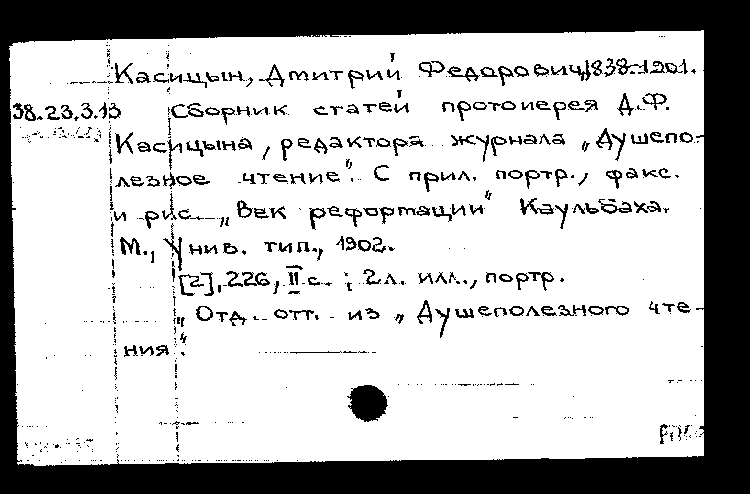 Касицын, Дмитрий Федорович, 1838-1901.
38.23.3.13 Сборник статей протоиерея Д.Ф.
Касицына, редактора журнала „Душепо-
лезное чтение". С прил. портр., факс.
и рис. „Век реформации" Каульбаха.
М., Унив. тип., 1902.
[2], 226, II с. ; 2 л. илл., портр.
„Отд. отт. из „Душеполезного чте-
ния".